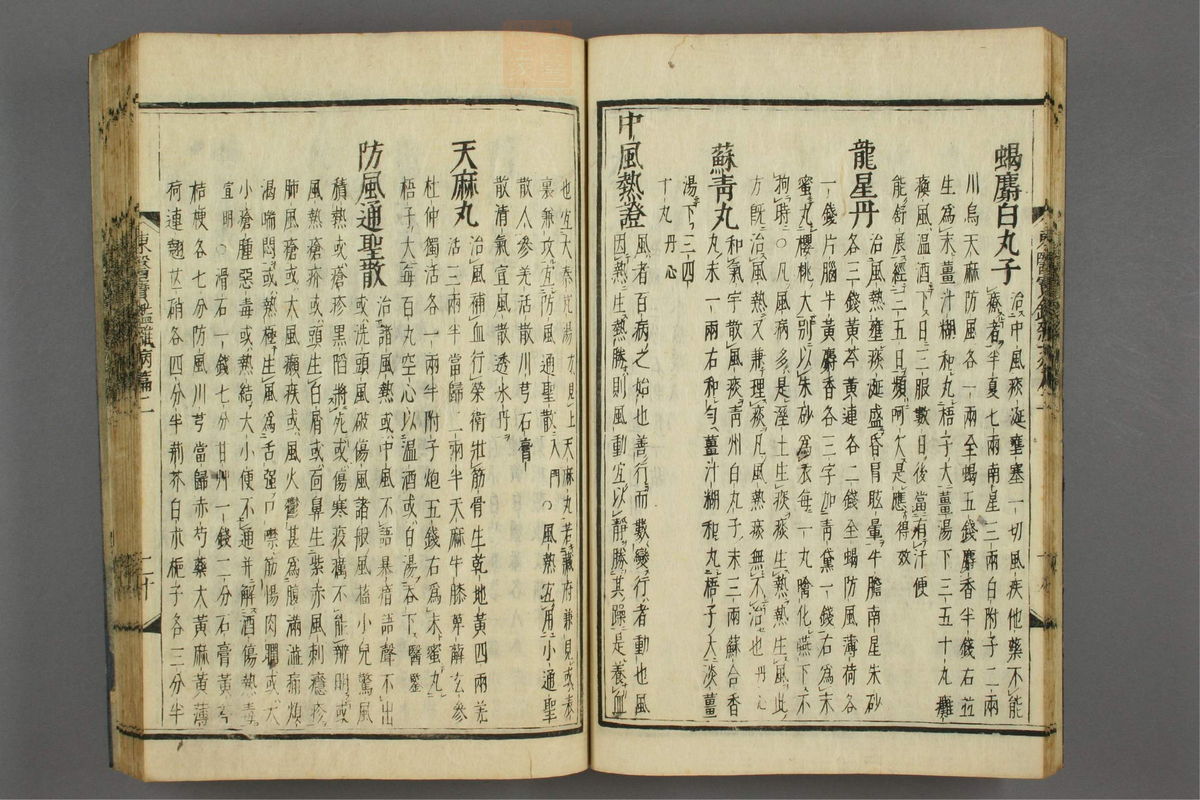 蝎麝白丸子
治中風痰涎壅塞一切風疾他藥不能
療者半夏七兩南星三兩白附子二兩
川烏天麻防風各一兩全蝎五錢麝香半錢右並
生爲末薑汁糊和丸梧子大薑湯下三五十丸癱
瘓風溫酒下日三服數日後當有汗便
能舒展經三五日頻呵欠是應得效
龍星丹
治風熱壅痰涎盛昏冒眩暈牛膽南星朱砂
各三錢黃芩黃連各二錢全蝎防風薄荷各
一錢片腦牛黃麝香各三字加靑黛一錢右爲末
蜜丸櫻桃大別以朱砂爲衣每一丸噙化嚥下不
拘時○凡風病多是溼土生痰痰生熱熱生風此
方既治風熱又兼理痰凡風熱痰無不治也丹心
蘇靑丸
和氣宇散風痰靑州白丸子末三兩蘇合香
丸末一兩右和勻薑汁糊和丸梧子大淡薑
湯下三四
十丸丹心
中風熱證
風者百病之始也善行而數變行者動也風
因熱生熱勝則風動宜以靜勝其躁是養血
也宜大秦艽湯方見上天麻丸若藏府兼見或表
裏兼攻宜防風通聖散入門○風熱宜用小通聖
散人參羌活散川芎石膏
散淸氣宣風散透氷丹
天麻丸
治風補血行榮衛壯筋骨生乾地黃四兩羌
活三兩半當歸二兩半天麻牛膝萆薢玄參
杜仲獨活各一兩半附子炮五錢右爲末蜜丸
梧子大每百丸空心以溫酒或白湯吞下醫鑒
防風通聖散
治諸風熱或中風不語暴瘖語聲不出
或洗頭風破傷風諸般風搐小兒驚風
積熱或瘡疹黑陷將死或傷寒疫癘不能辨明或
風熱瘡疥或頭生白屑或面鼻生紫赤風刺癮疹
肺風瘡或大風癩疾或風火鬱甚爲腹滿澁痛煩
渴喘悶或熱極生風爲舌强口噤筋惕肉瞤或大
小瘡腫惡毒或熱結大小便不通幷解酒傷熱毒
宣明○滑石一錢七分甘艸一錢二分石膏黃芩
桔梗各七分防風川芎當歸赤芍藥大黃麻黃薄
荷連翹芒硝各四分半荊芥白朮梔子各三分半
東醫寶鑑雜病篇二
二十